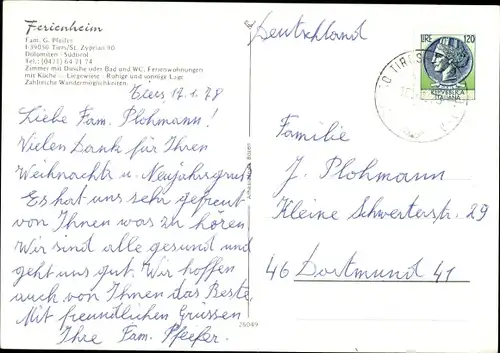 Ferienheim
Fam. G. Pfeifer
I-39050 Tiers/St. Zyprian 90
Dolomiten - Südtirol
Tel.: (0471) 64 21 74
Zimmer mit Dusche oder Bad und WC, Ferienwohnungen
mit Küche - Liegewiese - Ruhige und sonnige Lage
Zahlreiche Wandermöglichkeiten.
Tiers 17.1.78
Liebe Fam. Plohmann!
Vielen Dank für Ihren
Weihnachts u. Neujahrsgruß
Es hat uns sehr gefreut
von Ihnen was zu hören
Wir sind alle gesund und
geht uns gut. Wir hoffen
auch von Ihnen das Beste.
Mit freundlichen Grüssen
Ihre Fam. Pfeifer.
26049
Deutschland
LIRE 120
REPVBBLICA
ITALIANA
Familie
J. Plohmann
Kleine Schwerterstr. 29
46 Dortmund 41